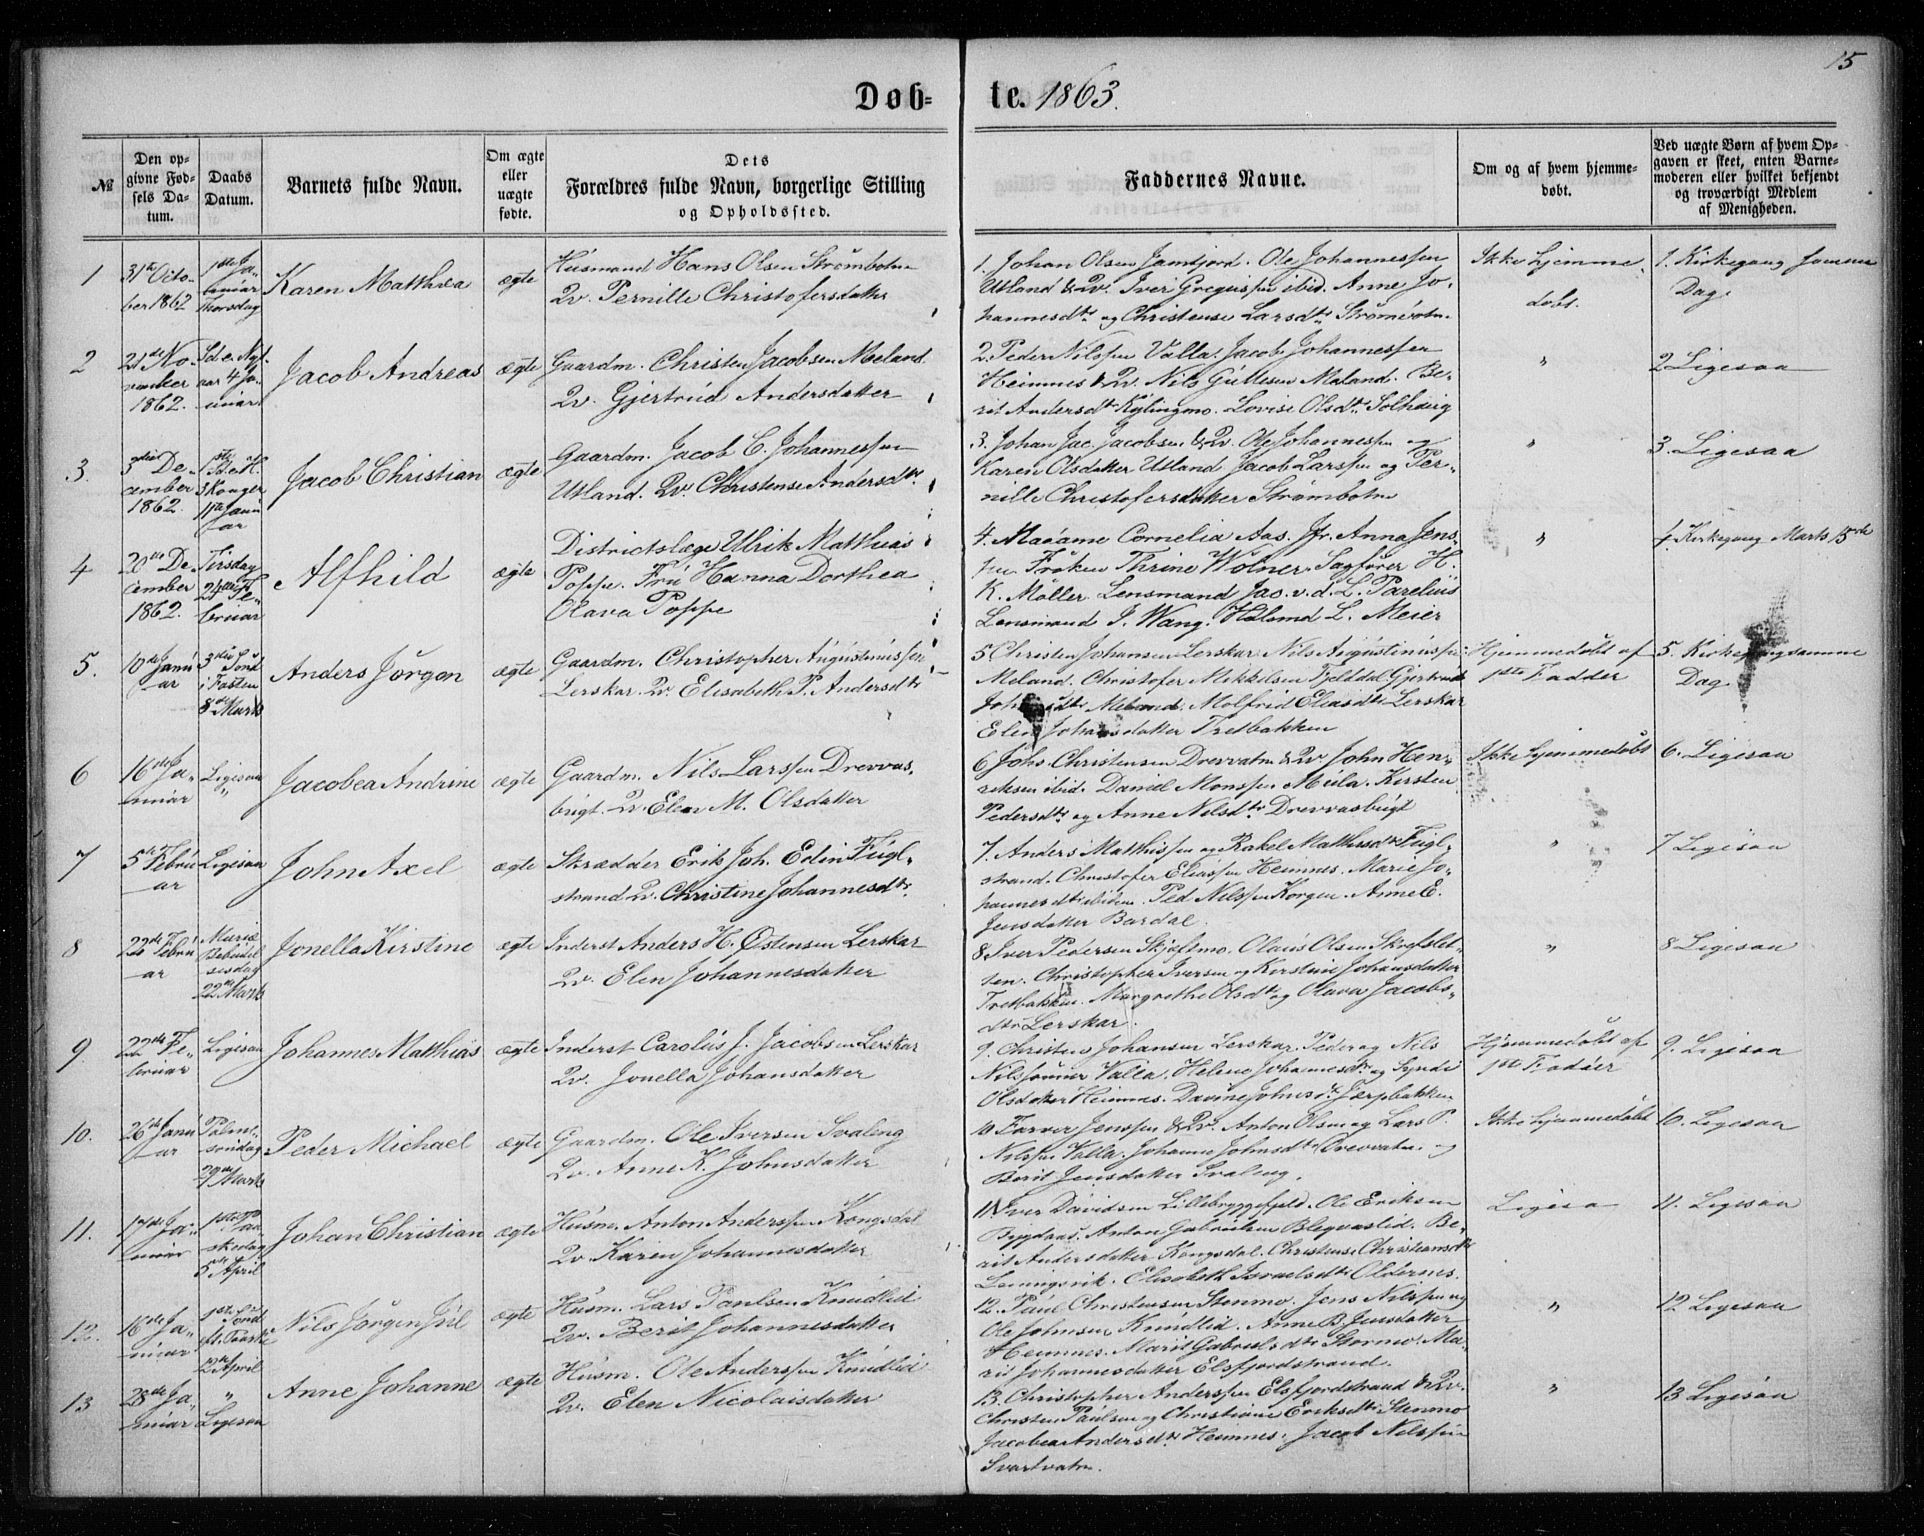 15
Døb- te. 1863.
№
Den op-
givne Fød-
sels Da-
tum.
Daabs
Datum.
Barnets fulde Navn.
Om ægte
eller
uægte
fødte.
Dets
Forældres fulde Navn, borgerlige Stilling
og Opholdssted.
Faddernes Navne.
Om og af hvem hjemme-
døbt.
Ved uægte Børn af hvem Op-
gaven er skeet, enten Barne-
moderen eller hvilket bekjendt
og troværdigt Medlem
af Menigheden.
1
31te Octo-
ber 1862
1ste Ja-
nuar
Thorsdag
Karen Matthea
ægte
Husmand Hans Olsen Strømbotn
Qv. Pernille Christofersdatter
1. Johan Olsen Jamtjord. Ole Johannessen
Utland & Qv. Iver Gregussen ibid. Anne Jo-
hannesdtr og Christense Larsdtr Strømbotn.
Ikke hjemme
døbt.
1. Kirkegang samme
Dag.
2
21de No-
vember
1862.
Sd. e. Nyt-
aar 4 Ja-
nuar
Jacob Andreas
ægte
Gaardm. Christen Jacobsen Meland
Qv. Gjertrud Andersdatter
2. Peder Nilssen Valla. Jacob Johannessen
Heimnes & Qv. Nils Gullesen Maland. Be-
rit Andersdtr Kyllingmo. Lovise Olsdtr Solhaug
"
2 Ligesaa
3.
3die De-
cember
1862.
1ste
3 Konger
11te Janu
ar
Jacob Christian
ægte
Gaardm. Jacob C. Johannessen
Utland. Qv. Christense Andersdtr
3. Johan Jac. Jacobsen & Qv. Ole Johannessen og
Karen Olsdatter Utland Jacob Larssen og Per-
nille Christofersdatter Strømbotn
"
3. Ligesaa
4
20de De-
cember
1862.
Tirsdag
24de Fe-
bruar
Alfhild
ægte
Districtslæge Ulrik Matthias
Poppe. Frü Hanna Dorthea
Olava Poppe
4. Madame Cornelia Aas. Jfr. Anna Jens-
sen Frøken Thrine Wolner. Sagfører H.
K. Møller. Lensmand Jac. v. d. L. Parelius
Lensmand J. Wang. L. Meier
"
4. Kirkegang Marts 15de
5.
10de Janu
ar
3die Sønd
i Fasten
8de Marts
Anders Jørgen
ægte
Gaardm. Christopher Augustinussen
Lerskar. Qv. Elisabeth P. Andersdtr
5 Christen Johansen Lerskar. Nils Augustinussen
Meland. Christofer Mikkelsen Fjelddal Gjertrud
Meland. Molfrid Eliasdtr Lerskar
Elen Johansdatter Tretbakken
Hjemmedøbt af
1ste Fadder
5. Kirkegang samme
Dag
6
16de Ja-
nuar
Ligesaa
"
Jacobea Andrine
ægte
Gaardm. Nils Larssen Drevvas-
bugt. Qv. Elen M. Olsdatter
6 Johs. Christensen Drevvatn & Qv. John Hen-
riksen ibid. Daniel Monssen Mula. Kirsten
Pedersdtr og Anne Nilsdtr Drevvasbugt
Ikke hjemmedøbt
6. Ligesaa
7
5te Febru
ar
Ligesaa
John Axel
ægte
Skrædder Erik Joh. Edin Fugl-
strand Qv. Christine Johannesdtr
7. Anders Matthissen og Rakel Matthisdtr Fugl-
strand. Christofer Eliassen Heimnes. Marie Jo-
hannesdtr ibidem. Ped Nilssen Korgen Anne E.
Jensdatter Bardal.
"
7 Ligesaa
8
22de Febru
ar
Mariæ
Bebudel
sesdag
22de Marts
Jonella Kirstine
ægte
Inderst Anders H. Østensen Lerskar
Qv. Elen Johannesdatter
8 Iver Pedersen Skjæftmo. Olaus Olsen Skrefslet-
ten. Christopher Iversen og Kerstine Johansdatter
Tretbakken. Margrethe Olsdtr og Olava Jacobs-
dtr Lerskar.
"
8 Ligesaa
9
22de Fe-
bruar
Ligesaa
Johannes Matthias
ægte
Inderst Carolus J. Jacobsen Lerskar
Qv. Jonella Johansdatter
9. Christen Johansen Lerskar. Peder og Nils
Nilssønner Valla. Helene Johannesdtr og Syndi
Olsdatter Heimnes. Davine Johnsdtr Jærpbakken
Hjemmedøbt af
1ste Fadder
9. Ligesaa
10.
26de Janu
ar
Palme-
søndag
29de Marts
Peder Michael
ægte
Gaardm. Ole Iversen Svaleng
Qv. Anne K. Johnsdatter
10 Farver Jenssen & Qv. Anton Olsen og Lars P.
Nilssen Valla. Johanna Johnsdtr Drevvatn og
Berit Jensdatter Svaleng.
Ikke hjemmedøbt
10. Ligesaa
11.
17de Ja-
nuar
1ste Paa
skedag
5te April
Johan Christian
ægte
Husm. Anton Anderssen Kongsdal
Qv. Karen Johannesdatter
11. Iver Davidsen Lillebryggefjeld. Ole Eriksen
Bygdaas. Anton Gabrielsen Bleqvaslid. Be-
rit Andersdatter Kongsdal. Christense Christiansdtr
Leiningsvik. Elisabeth Israelsdtr Oldernes.
Ligesa
11. Ligesaa
12.
16de Ja-
nuar
1ste Sønd
e. Paaske
12te April
Nils Jørgen Jul
ægte
Husm. Lars Paulsen Knudlid
Qv. Berit Johannesdatter
12. Paul Christensen Stenmo. Jens Nilssen og
Ole Johnsen Knudlid. Anne B. Jensdatter
Heimnes. Marit Gabrielsdtr Stormo. Ma-
rit Johannesdatter Elsfjordstrand.
"
12 Ligesaa
13
28de Ja-
nuar
"
Ligesaa
Anne Johanne
ægte
Husm. Ole Anderssen Knudlid
Qv. Elen Nicolaisdatter
13. Christopher Anderssen Elsfjordstrand & Qv.
Christen Paulsen og Christiane Eriksdtr Stenmo
Jacobea Andersdtr Heimnes. Jacob Nilssen
Svartvatn.
"
13 Ligesaa